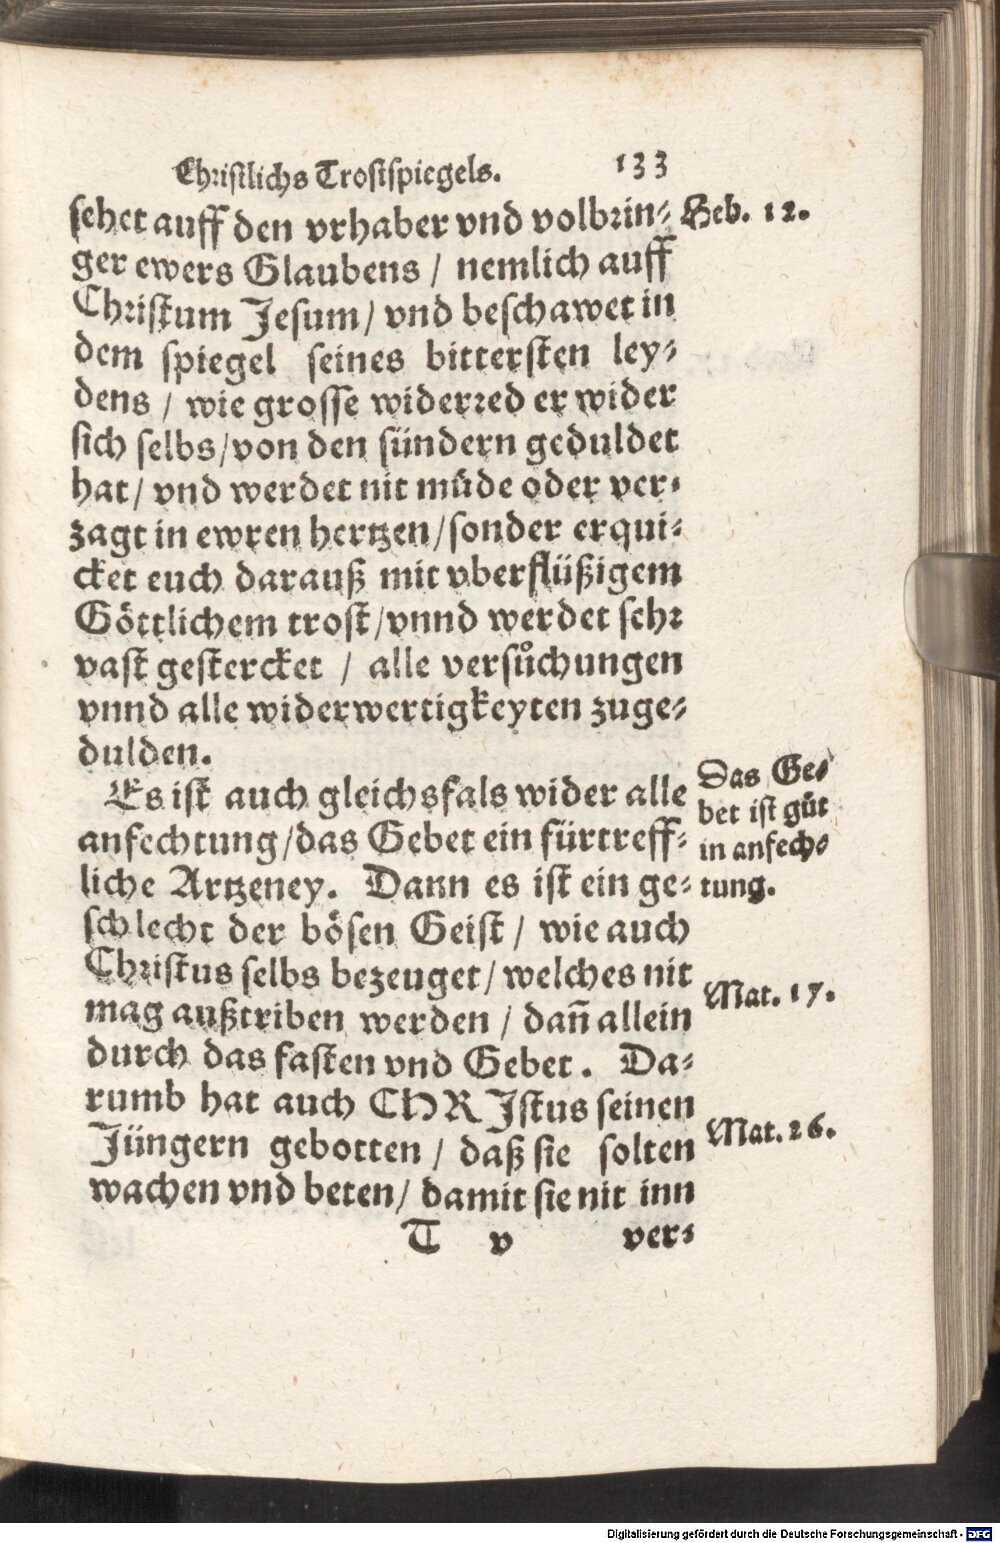 Christlichs Trostspiegels. 133
sehet auff den vrhaber vnd volbrin- Heb. 12.
ger ewers Glaubens / nemlich auff
Christum Jesum / vnd beschawet in
dem spiegel seines bittersten ley-
dens / wie grosse widerred er wider
sich selbs / von den sündern geduldet
hat / vnd werdet nit müde oder ver-
zagt in ewren hertzen / sonder erqui-
cket euch darauß mit vberflüßigem
Göttlichem trost / vnnd werdet sehr
vast gestercket / alle versůchungen
vnnd alle widerwertigkeyten zuge-
dulden.
Es ist auch gleichsfals wider alle
anfechtung / das Gebet ein fürtreff-
liche Artzeney. Dann es ist ein ge-
schlecht der bösen Geist / wie auch
Christus selbs bezeuget / welches nit
mag außtriben werden / dañ allein
durch das fasten vnd Gebet. Da-
rumb hat auch CHRJstus seinen
Jüngern gebotten / daß sie solten
wachen vnd beten / damit sie nit inn
T v ver-
Das Ge-
bet ist güt
in anfech-
tung.
Mat. 17.
Mat. 26.
Digitalisierung gefördert durch die Deutsche Forschungsgemeinschaft - DFG